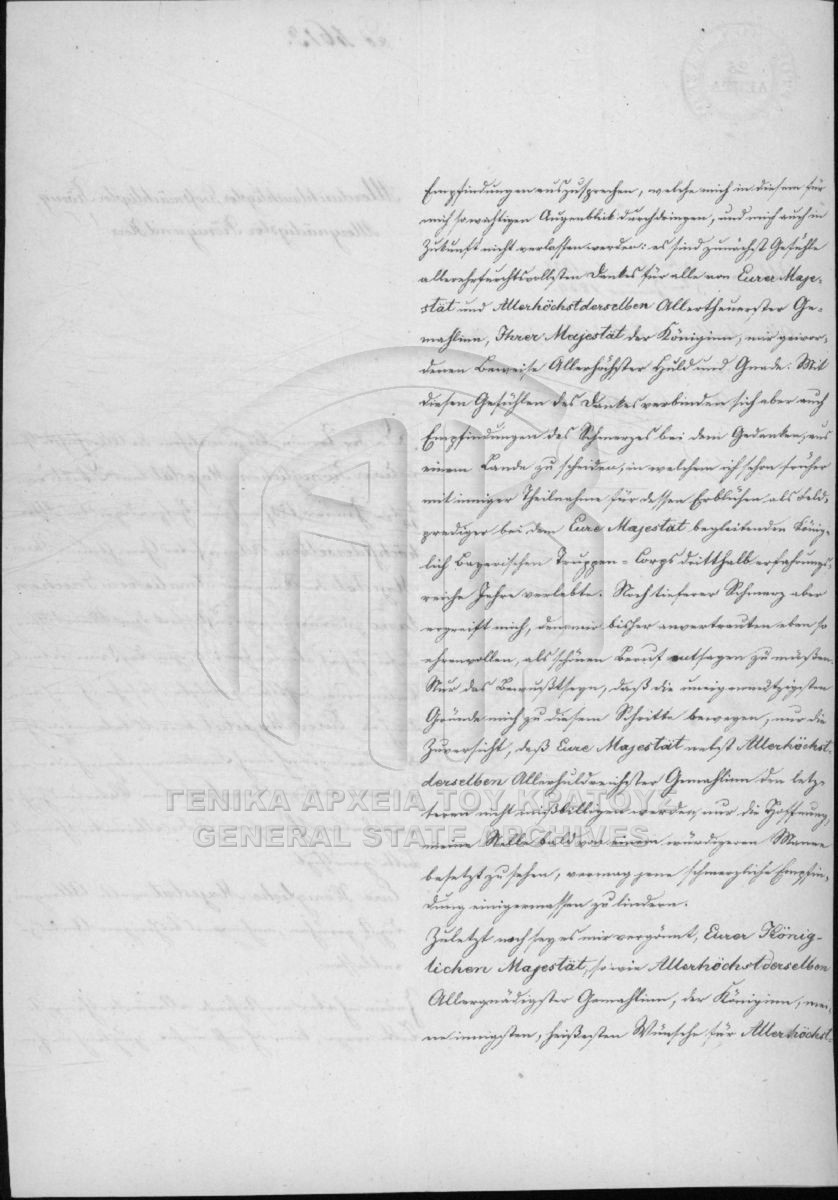 Empfindungen auszusprechen, welche mich in diesem für
mich so wichtigen Augenblick durchdringen, und mich auch in
Zukunft nicht verlassen werden: es sind zunächst Gefühle
allerehrfurchtsvollsten Dankes für alle von Eurer Maje-
stät und Allerhöchstderselben Allertheuerster Ge-
mahlinn, Ihrer Majestät der Königinn, mir gewor-
denen Beweise Allerhöchster Huld und Gnade. Mit
diesen Gefühlen des Dankes verbinden sich aber auch
Empfindungen des Schmerzes bei dem Gedanken, aus
einem Lande zu scheiden, in welchem ich schon früher
mit inniger Theilnahme für dessen Erblühen als Feld-
prediger bei dem Eure Majestät begleitenden König-
lich Bayerischen Truppen-Corps dritthalb erfahrungs-
reiche Jahre verlebte. Noch tieferer Schmerz aber
ergreift mich, dem mir bisher anvertrauten eben so
ehrenvollen, als schönen Beruf entsagen zu müßen.
Nur das Bewußtseyn, daß die uneigennützigsten
Gründe mich zu diesem Schritte bewegen, nur die
Zuversicht, daß Eure Majestät nebst Allerhöchst-
derselben Allerhuldreichster Gemahlinn den letz-
teren nicht mißbilligen werden, nur die Hoffnung,
meine Stelle bald von einem würdigeren Manne
besetzt zu sehen, vermag jene schmerzliche Empfin-
dung einigermassen zu lindern.
Zuletzt noch sey es mir vergönnt, Eurer König-
lichen Majestät, so wie Allerhöchstderselben
Allergnädigster Gemahlinn, der Königinn, mei-
ne innigsten, heißesten Wünsche für Allerhöchst-
ΓΕΝΙΚΑ ΑΡΧΕΙΑ ΤΟΥ ΚΡΑΤΟΥΣ
GENERAL STATE ARCHIVES